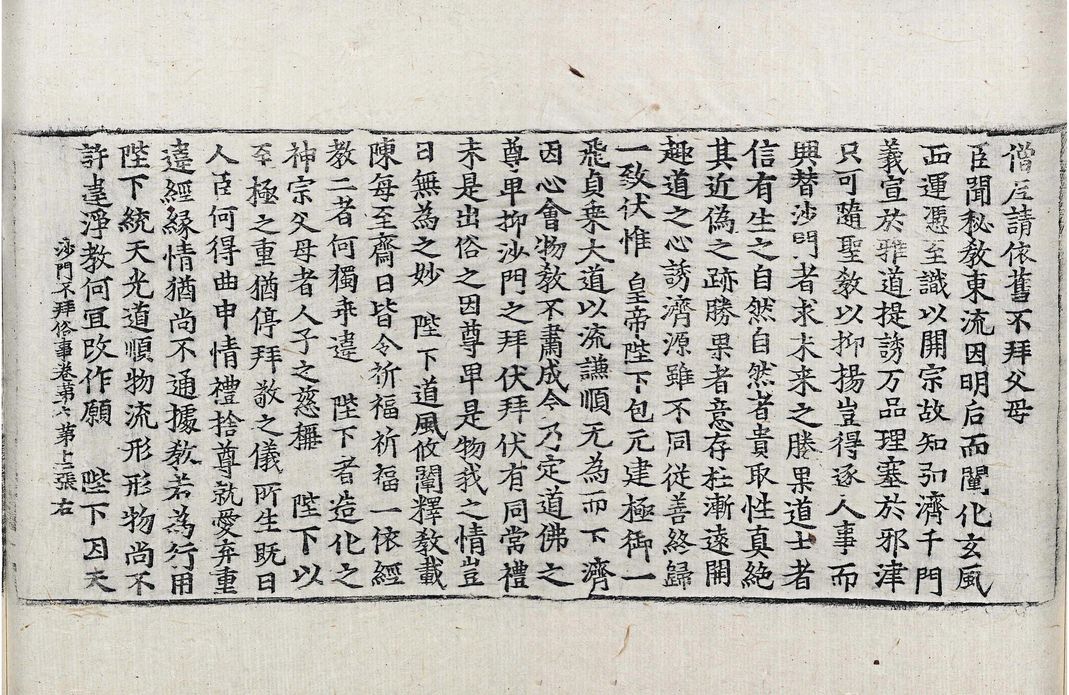 僧尼請依舊不拜父母
臣聞秘教東流因明后而闡化玄風
西運憑至識以開宗故知弘濟千門
義宣於雅道提誘万品理塞於邪津
只可隨聖教以抑揚豈得逐人事而
興替沙門者求未来之勝果道士者
信有生之自然自然者貴取性真絕
其近偽之跡勝果者意存杜漸遠開
趣道之心誘濟源雖不同從善終歸
一致伏惟 皇帝陛下包元建極御一
飛貞乗大道以流謙順无為而下濟
因心會物教不肅成今乃定道佛之
尊卑抑沙門之拜伏拜伏有同常禮
未是出俗之因尊卑是物我之情豈
曰無為之妙 陛下道風攸闡釋教載
陳每至齋日皆令祈福祈福一依經
教二者何獨乖違 陛下者造化之
神宗父母者人子之慈稱 陛下以
至極之重猶停拜敬之儀所生既曰
人臣何得曲申情禮捨尊就愛弃重
違經緣情猶尚不通據教若為行用
陛下統天光道順物流形形物尚不
許違淨教何宜改作願 陛下因天
沙門不拜俗事卷第六 第十二張 右